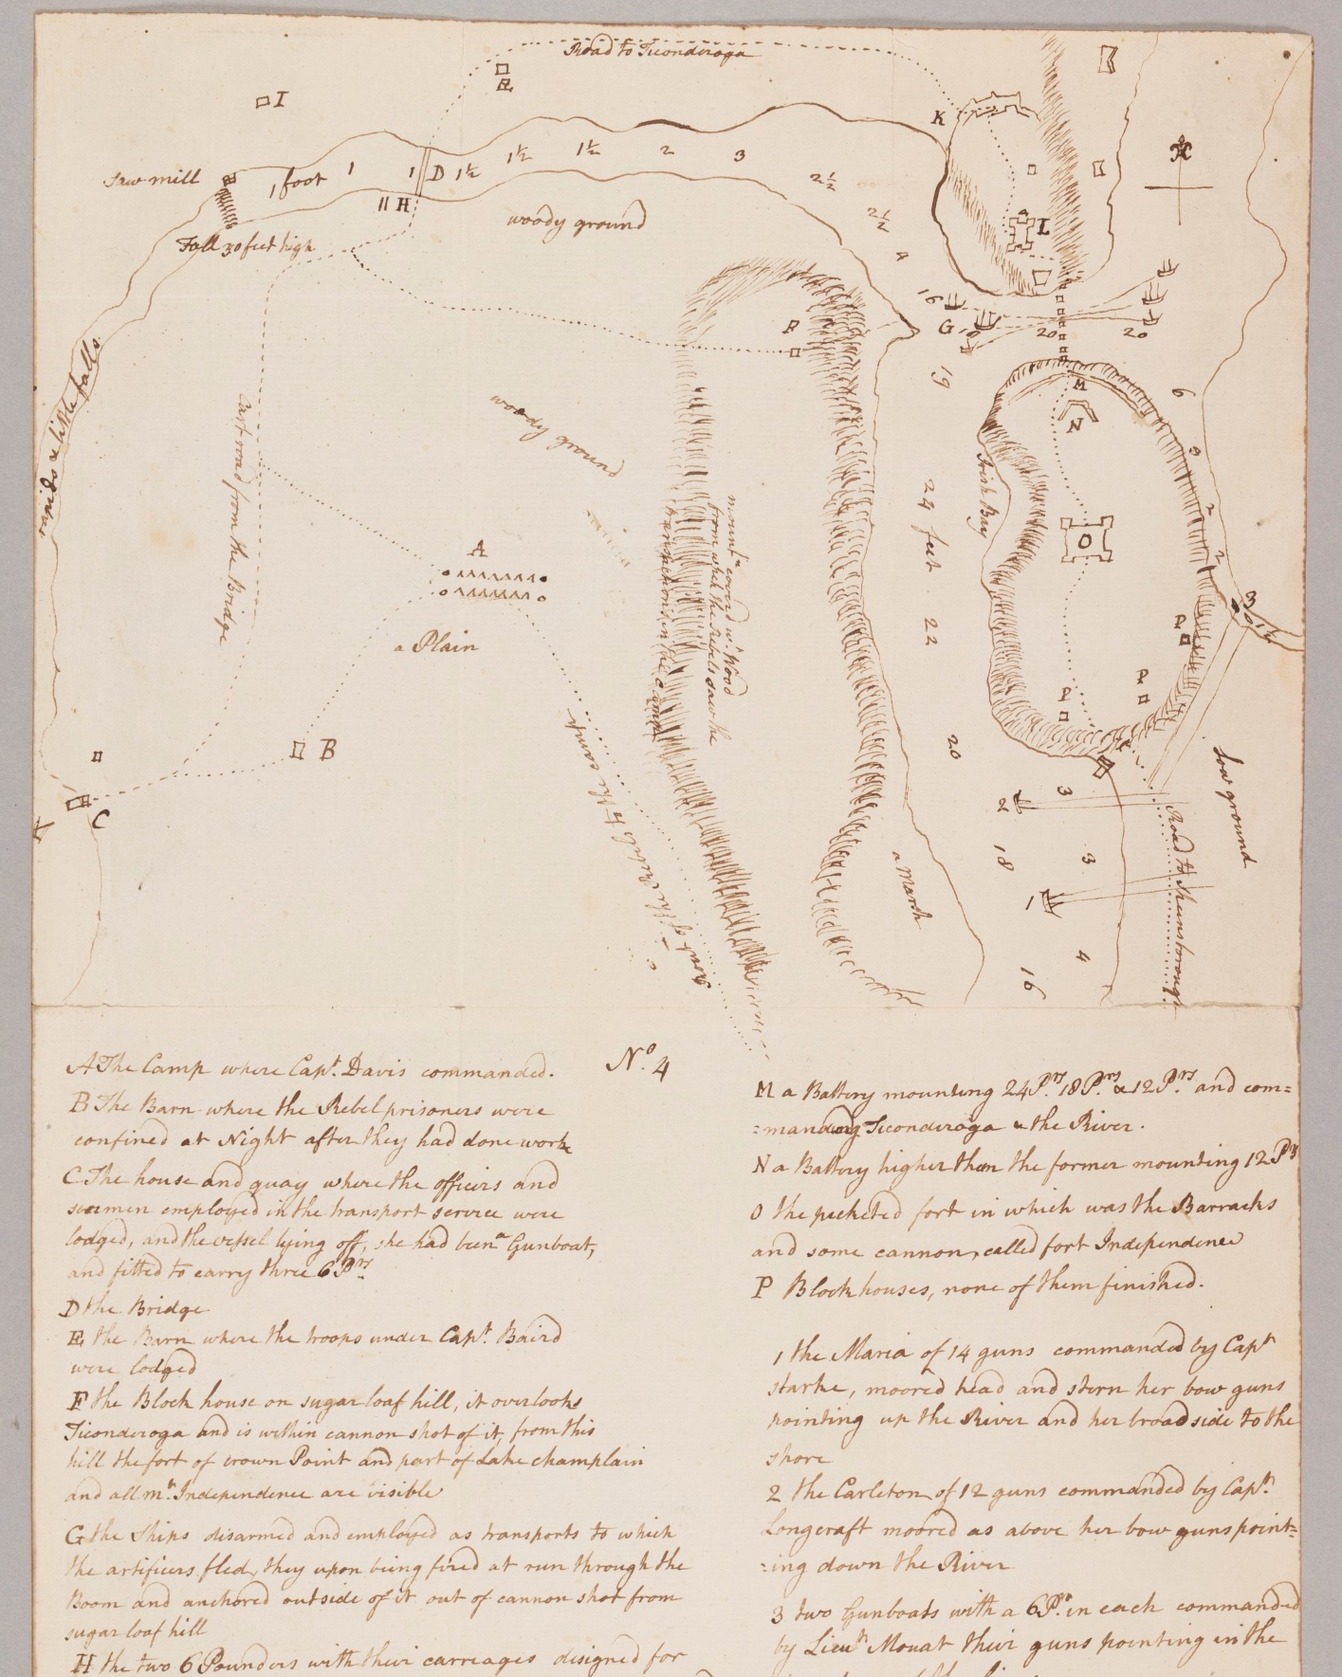 Road to Ticonderoga
E
I
K
Saw mill
1 foot
1
1
D
1½
1½
1½
2
3
2½
2½
4
H
Fall 30 feet high
woody ground
L
16
G
19
20
20
F
19
6
M
N
rapids & little falls
Cart road from the Bridge
woody ground
Irish Bay
24 feet
22
O
2
2
3
A
a Plain
mountn. coverd wt. Wood
from which the Rebels saw the
transactions in the Camp
P
P
P
B
C
20
Low ground
2
3
18
3
1
4
16
a Marsh
Road to Skeensborough
Road of the Rebels to the camp
No. 4
A The Camp where Capt. Davis commanded.
B The Barn where the Rebel prisoners were
confined at Night after they had done work
C The house and quay where the officers and
seamen employed in the transport service were
lodged, and the vessel lying off, she had been a Gunboat,
and fitted to carry three 6 Prs.
D the Bridge
E the Barn where the troops under Capt. Baird
were lodged
F the Block house on sugar loaf hill, it overlooks
Ticonderoga and is within cannon shot of it, from this
hill the fort of crown Point and part of Lake champlain
and all mt. Independence are visible
G the Ships disarmed and employed as transports to which
the artificers fled, they upon being fired at run through the
Boom and anchored outside of it out of cannon shot from
sugar loaf hill
H the two 6 Pounders with their carreages designed for
M a Battery mounting 24 Prs. 18 Prs. & 12 Prs. and com=
=manding Ticonderoga & the River.
N a Battery higher than the former mounting 12 Prs
O the picketed fort in which was the Barracks
and some cannon, called fort Independence
P Block houses, none of them finished.
1 the Maria of 14 guns commanded by Capt
Starke, moored head and stern her bow guns
pointing up the River and her broad side to the
shore
2 the Carleton of 12 guns commanded by Capt.
Longcraft moored as above her bow guns point=
=ing down the River
3 two Gunboats with a 6 Pr. in each commanded
by Lieut. Mouat their guns pointing in the